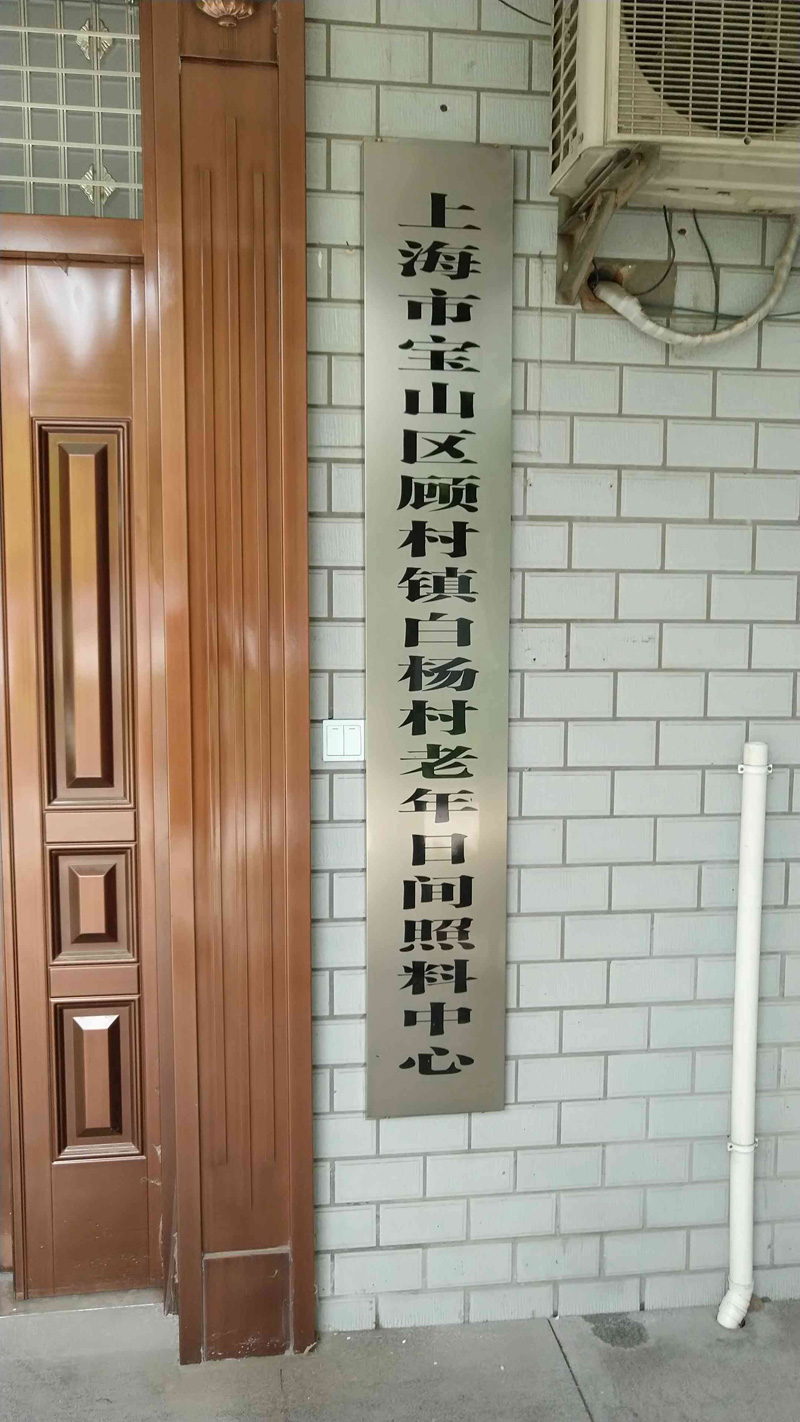 上海市宝山区顾村镇白杨村老年日间照料中心